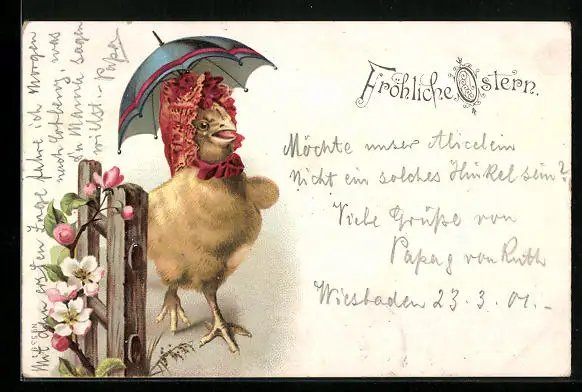 Fröhliche Ostern.
Möchte unser Alicelein
nicht ein solches Hinkel sein?
Viele Grüße von
Papa u. von Ruth
Wiesbaden 23.3.01. –
Mit dem ersten Zuge fahre ich morgen
nach, was
Du Mama sagen
willst. – Papa